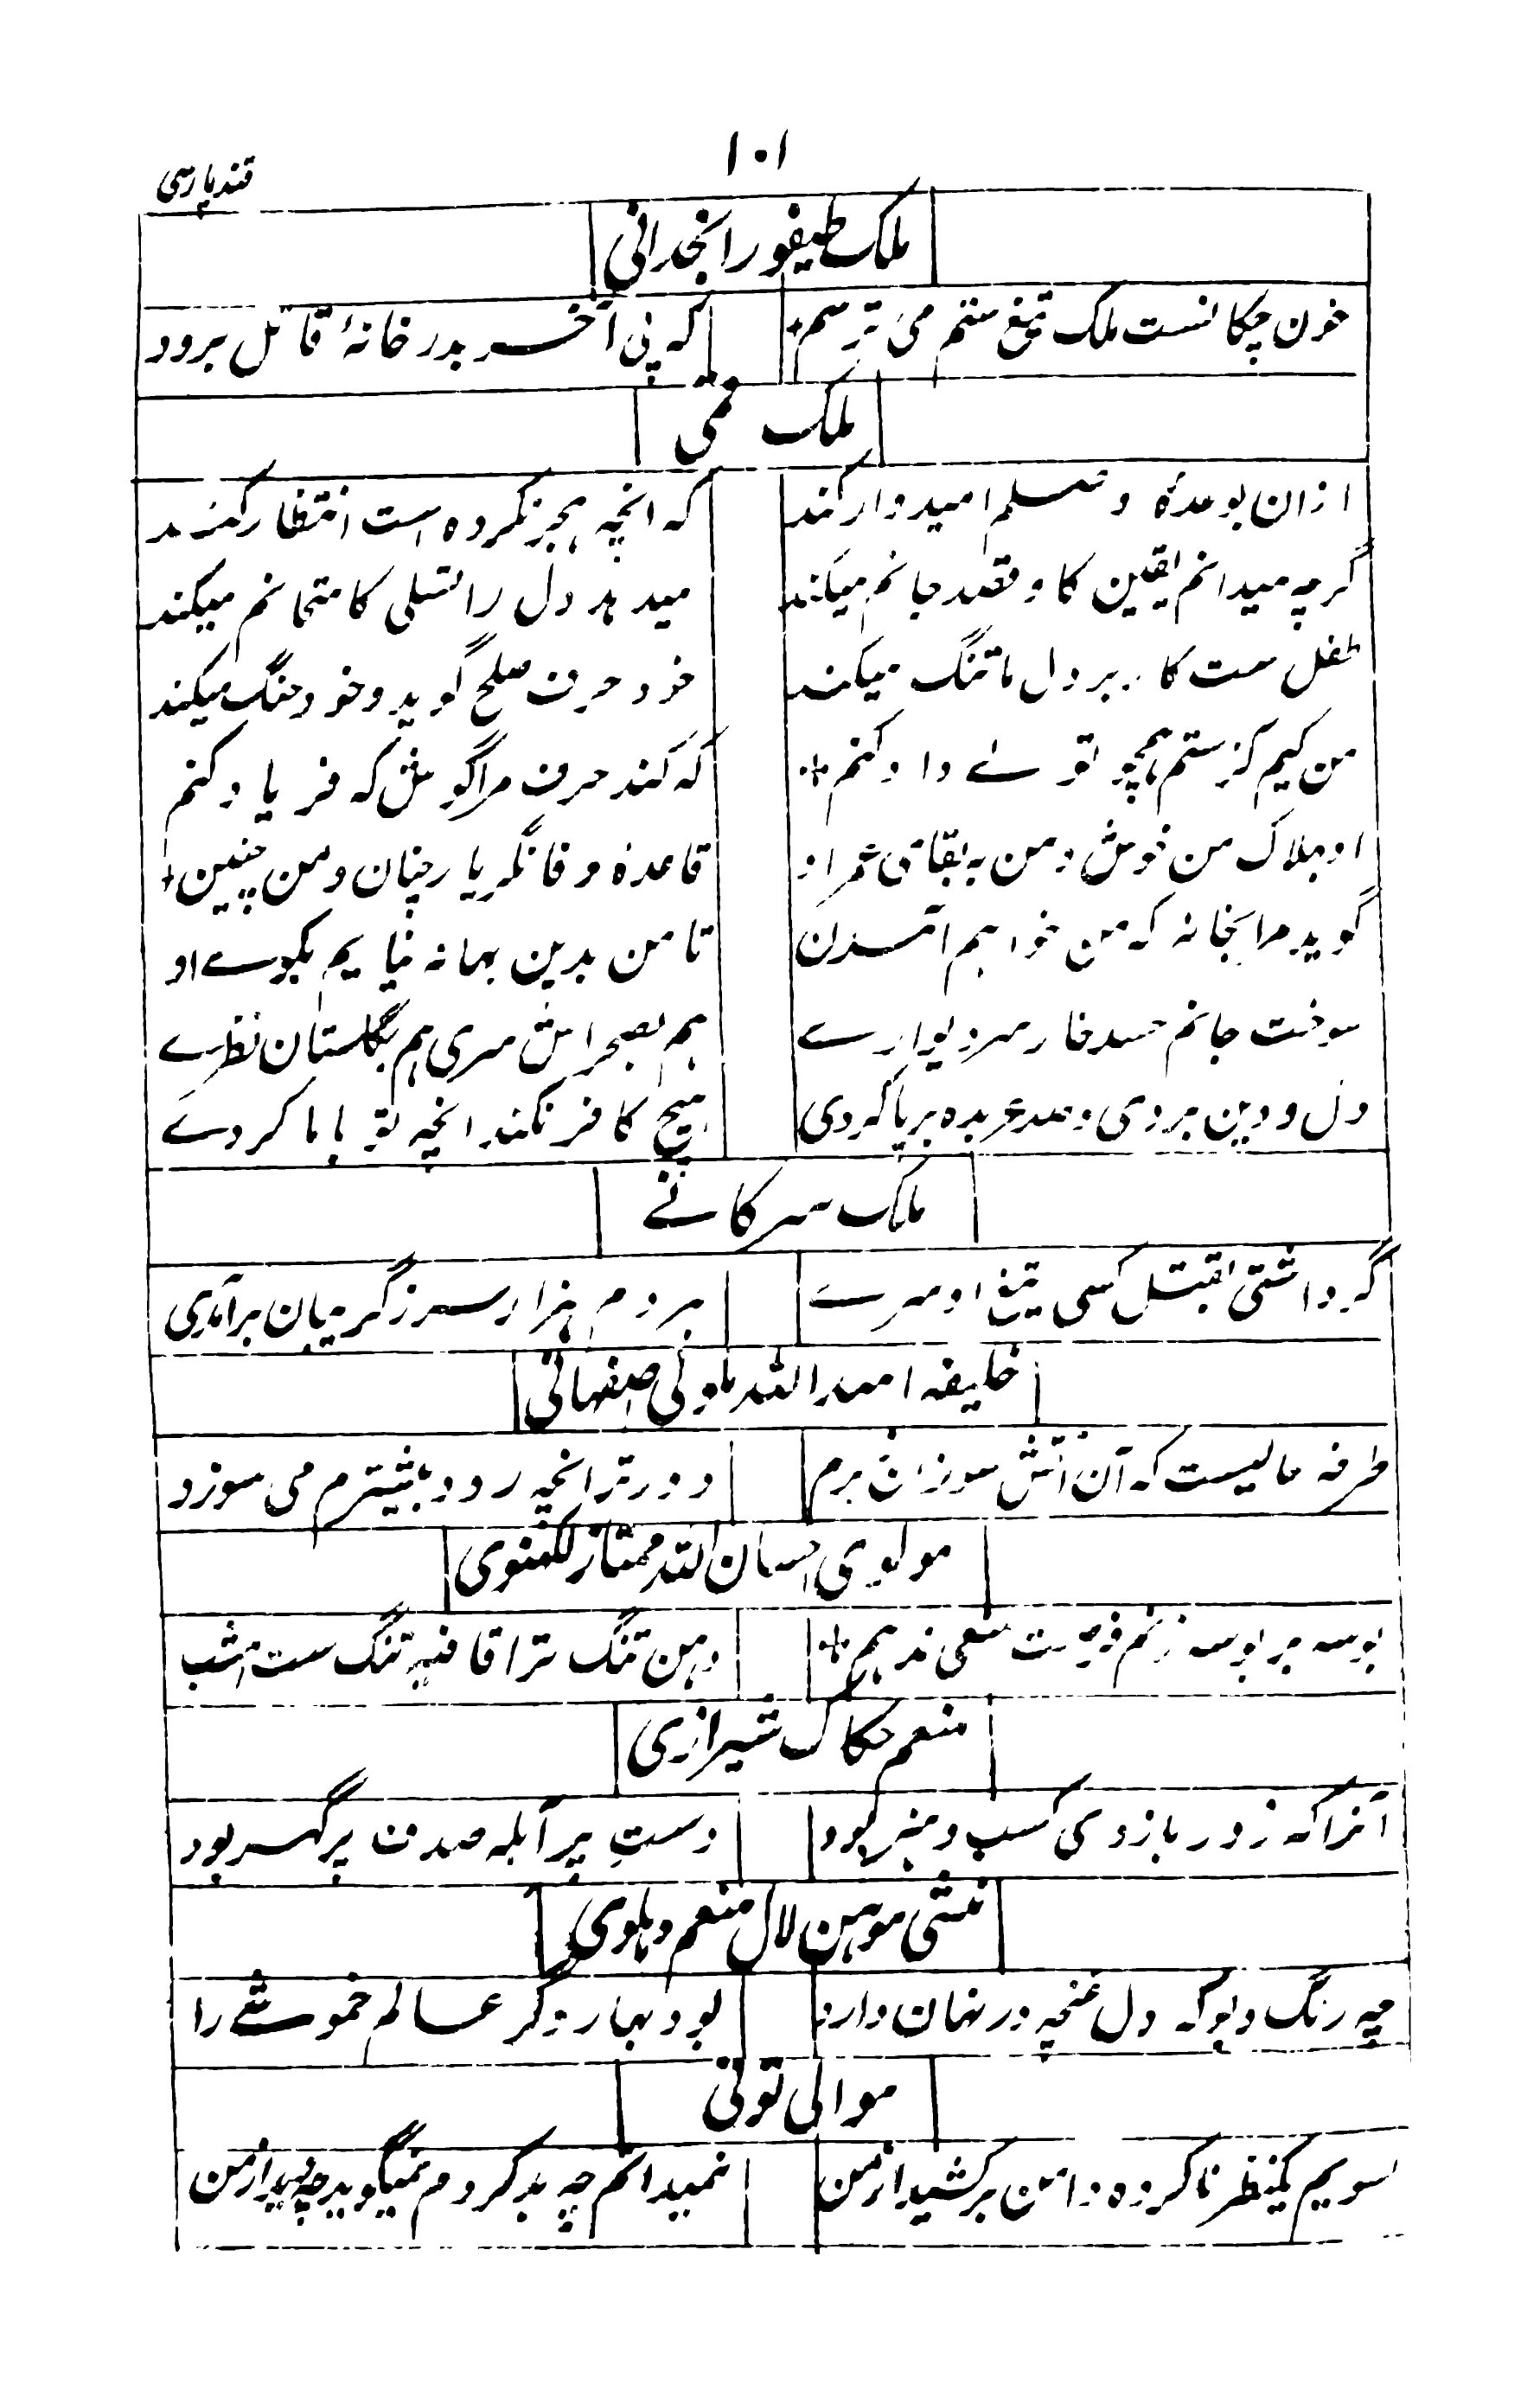 ۱۰۱
قند پارسی
ملک طیفور انجدانی
خون چکانست ملک تیغ ستم می ترسم
که پی آخر بدر خانهٔ قاتل برود
ملک قمی
ازان بوعدهٔ وصلم امیدوار کند
که انچه هجر نکرده است انتظار کند
گرچه میدانم یقین کاو قصد جانم میکند
میدهد دل را تسلی کامتحانم میکند
طفل ست کار بر دل ما تنگ میکند
خود حرف صلح گوید و خود جنگ میکند
من کیم کز ستم همچو توئے داد کنم
که کند حرف مرا گوش که فریاد کنم
او بهلاک من خوش و من به بقای عمر او
قاعدهٔ وفا نگر یار چنان و من چنین
گوید مرا بخانه که من خواهم آمدن
تا من بدین بهانه نیایم بکوے او
سوخت جانم حسد خار سر دیوارے
هم بصحراش سری هم بگلستان نظرے
دل و دین بردی و صد عربده برپا کردی
هیچ کافر نکند انچه تو با ما کردے
ملک سرکانے
گر داشتی بقتل کسی تیغ او سرے
هر دم هزار سر ز گریبان برآمدی
خلیفه اسد الله مادلی اصفهانی
طرفه حالیست که آن آتش سوزان ز برم
دورتر انچه رود بیشترم می سوزد
مولوی احسان الله ممتاز لکهنوی
بوسه بر بوسه زنم فرصت سعی ندهم
دهن تنگ ترا قافیه تنگ ست امشب
منعم حکاک شیرازی
آنرا که زور بازوی کسب و هنر بود
دستِ پر آبله صدف پر گهر بود
منشی موهن لال منعم دهلوی
چه رنگ و بو که دل غنچه در نهان دارد
بود بهار دگر عالم خموشے را
موالی تونی
بسویم یکنظر ناکرده دامن برکشید از من
نمیدانم چه بد کردم نمیگوید چه دید از من